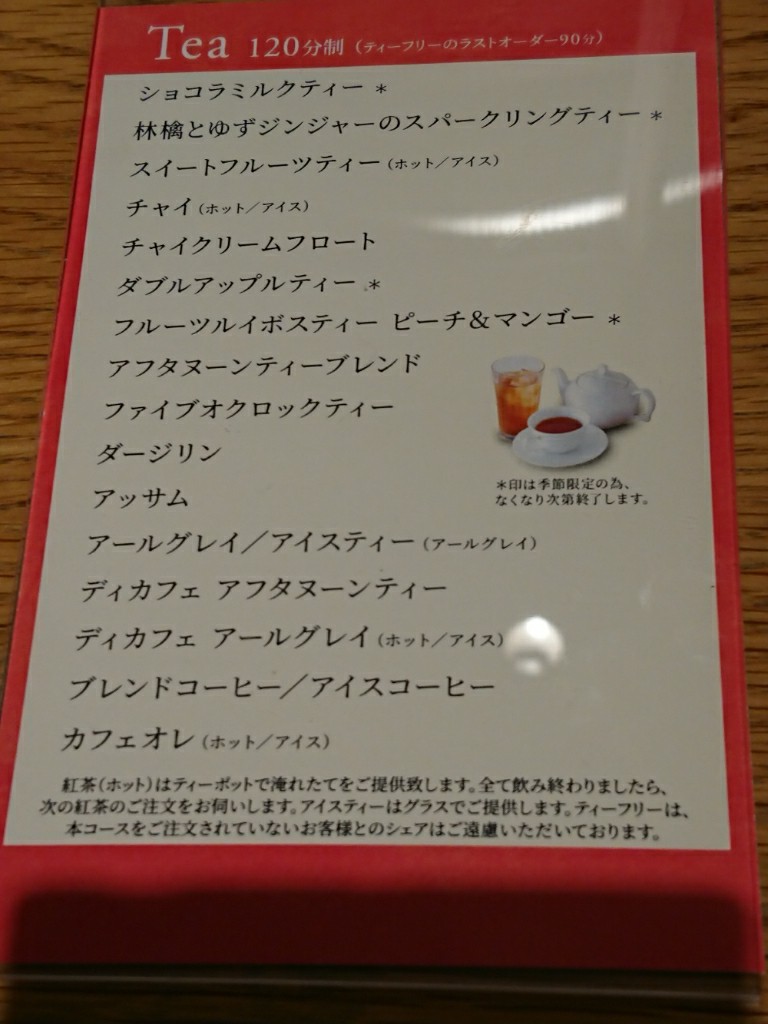 Tea 120分制（ティーフリーのラストオーダー90分）
ショコラミルクティー ＊
林檎とゆずジンジャーのスパークリングティー ＊
スイートフルーツティー（ホット／アイス）
チャイ（ホット／アイス）
チャイクリームフロート
ダブルアップルティー ＊
フルーツルイボスティー ピーチ＆マンゴー ＊
アフタヌーンティーブレンド
ファイブオクロックティー
ダージリン
アッサム
＊印は季節限定の為、
なくなり次第終了します。
アールグレイ／アイスティー（アールグレイ）
ディカフェ アフタヌーンティー
ディカフェ アールグレイ（ホット／アイス）
ブレンドコーヒー／アイスコーヒー
カフェオレ（ホット／アイス）
紅茶（ホット）はティーポットで淹れたてをご提供致します。全て飲み終わりましたら、
次の紅茶のご注文をお伺いします。アイスティーはグラスでご提供します。ティーフリーは、
本コースをご注文されていないお客様とのシェアはご遠慮いただいております。